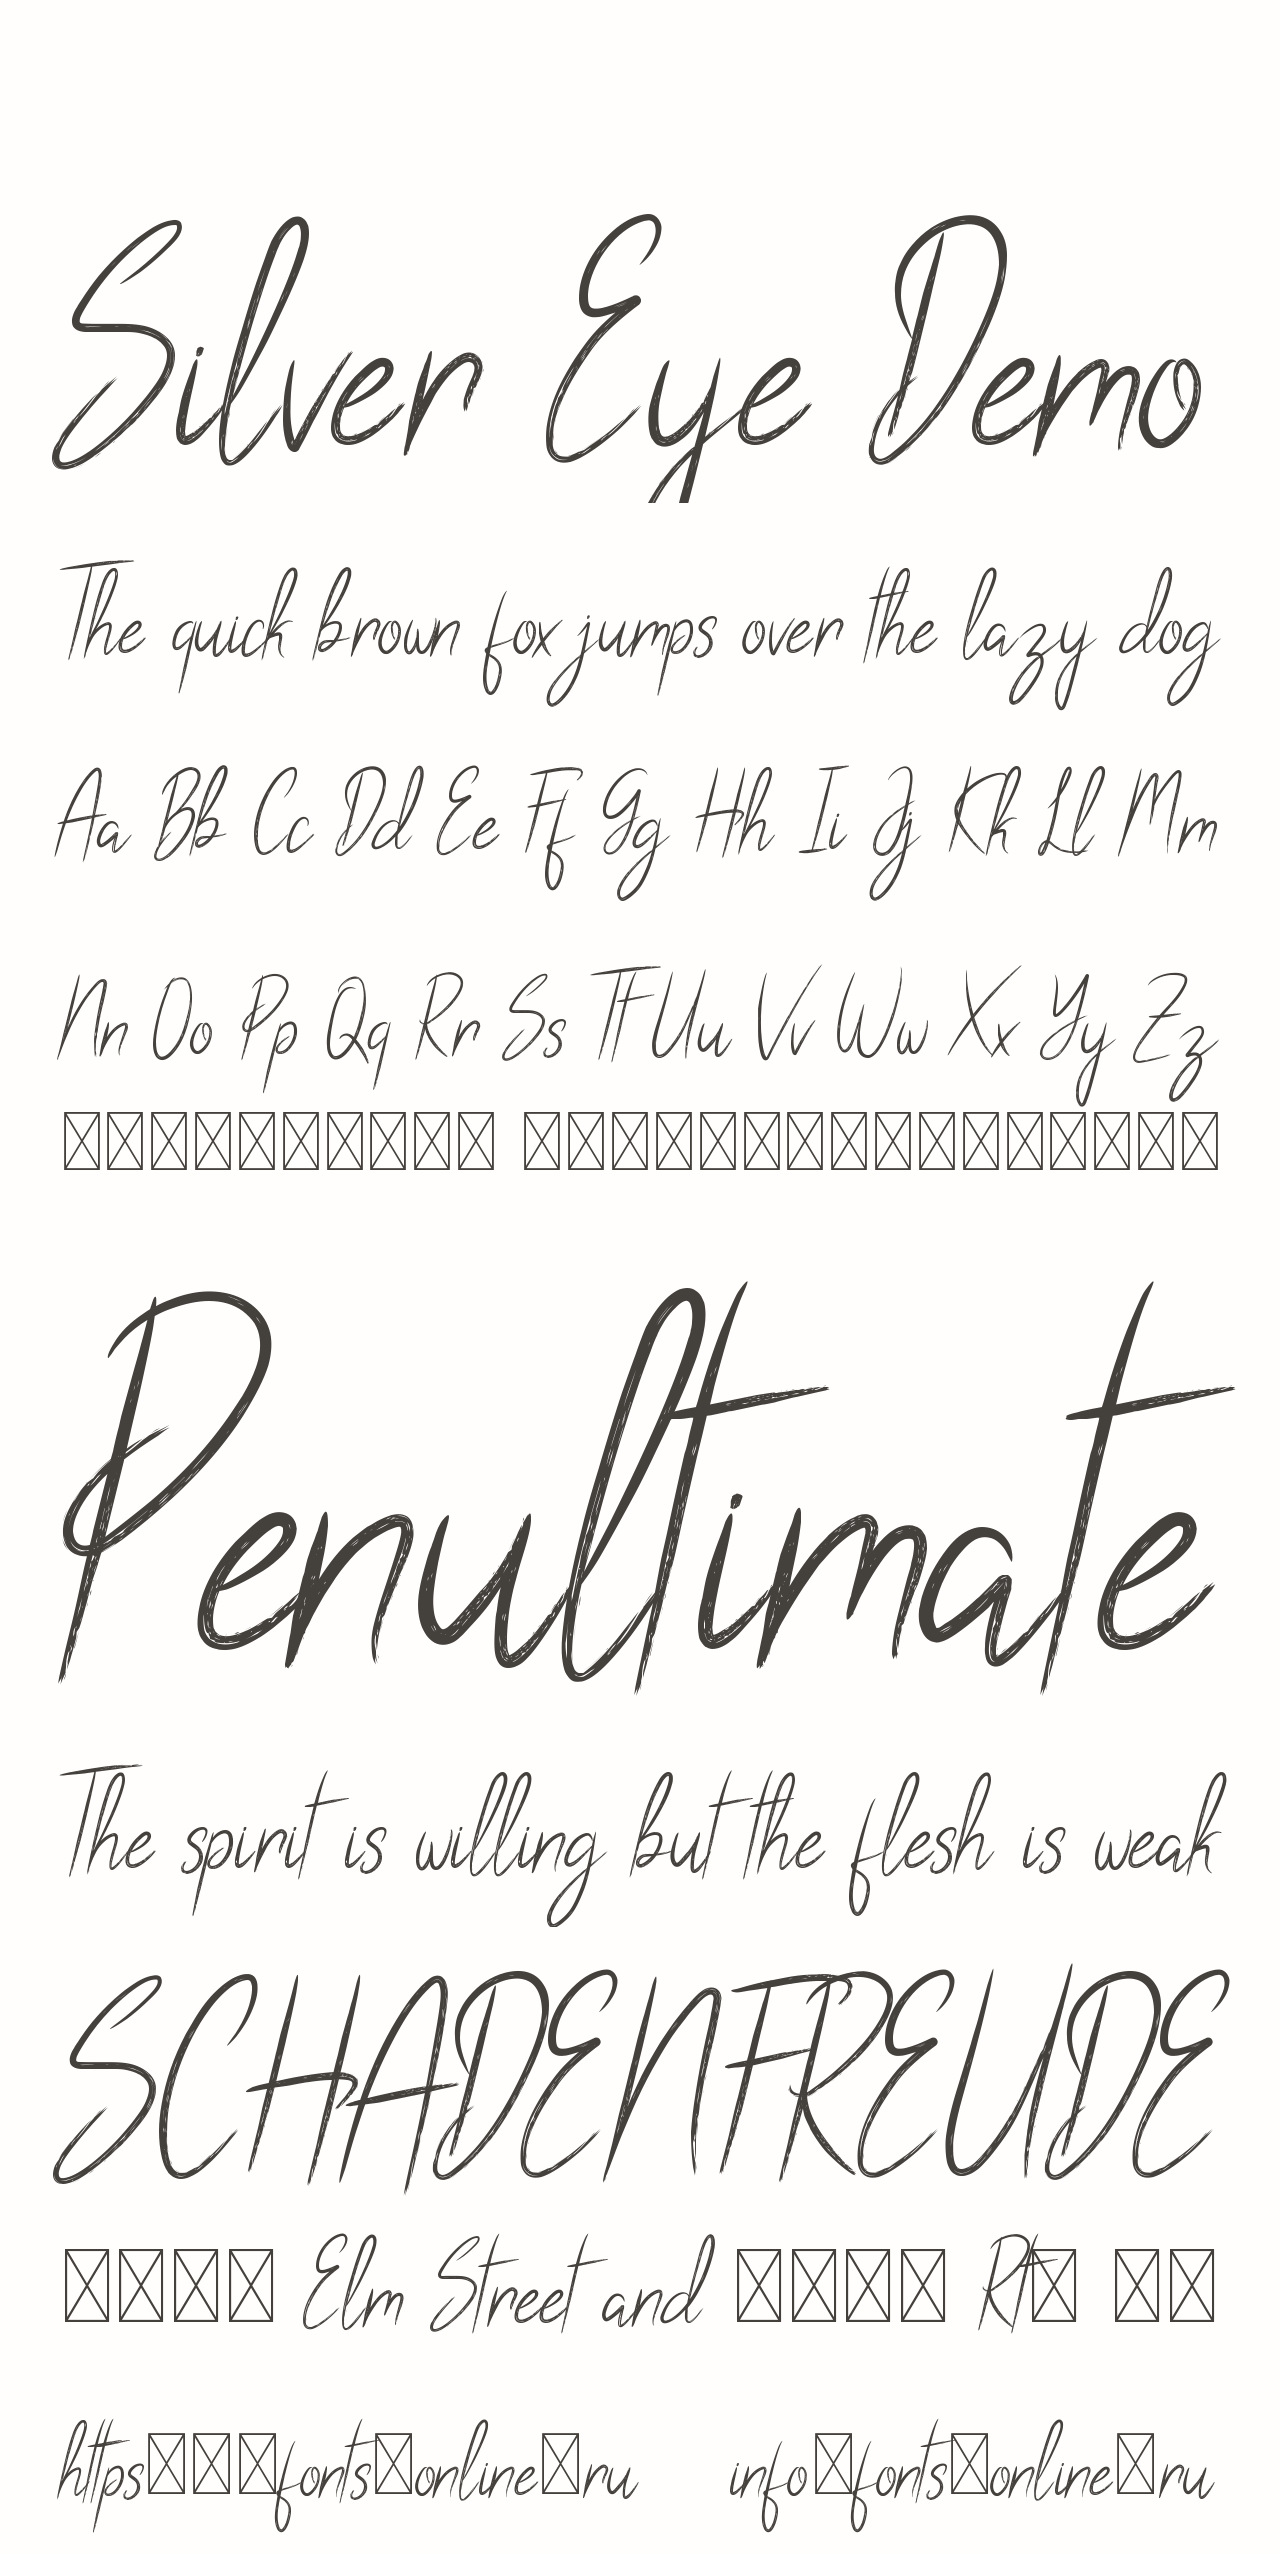 Silver Eye Demo
The quick brown fox jumps over the lazy dog
Aa Bb Cc Dd Ee Ff Gg Hh Ii Jj Kk Ll Mm
Nn Oo Pp Qq Rr Ss Tt Uu Vv Ww Xx Yy Zz
Penultimate
The spirit is willing but the flesh is weak
SCHADENFREUDE
Elm Street and Rt
https fonts online ru info fonts online ru